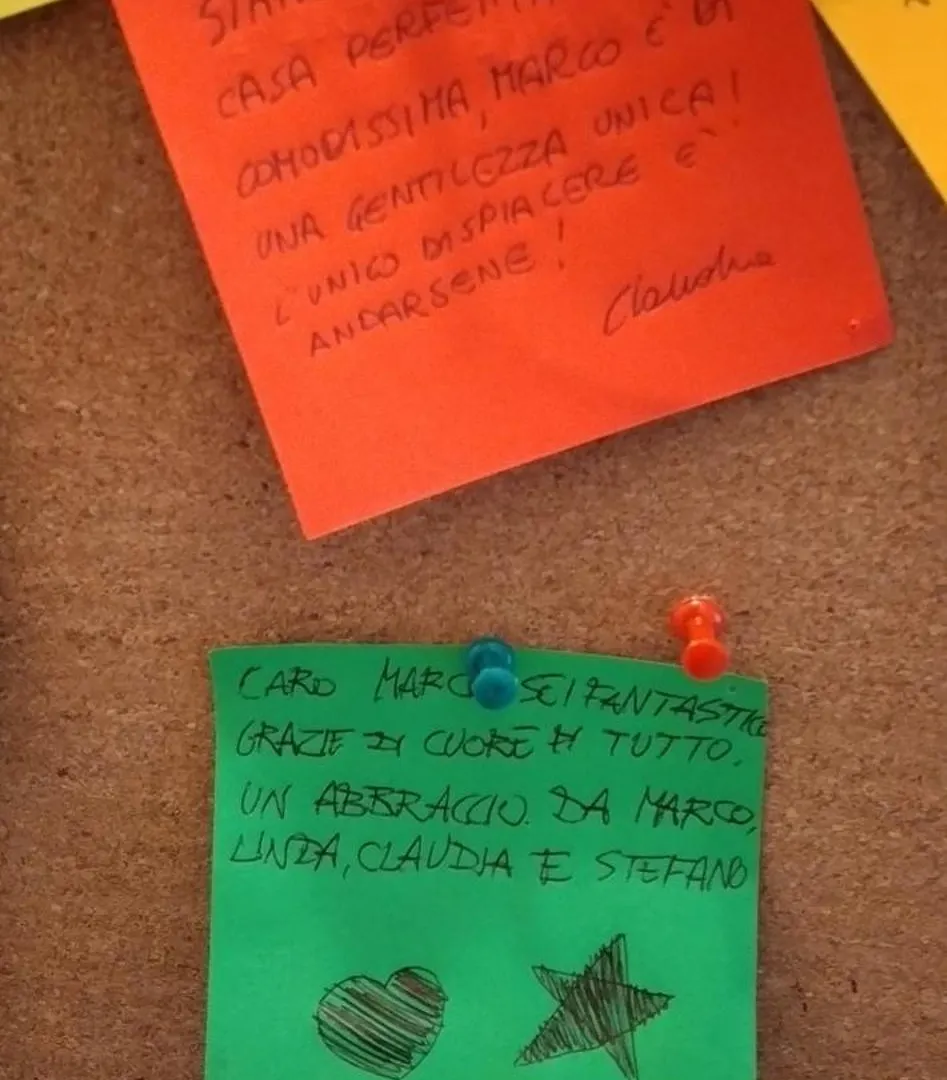 CASA
COMODISSIMA, MARCO È DI
UNA GENTILEZZA UNICA!
L'UNICO DISPIACERE È
ANDARSENE!
Claudia
CARO MARCO SEI FANTASTICO
GRAZIE DI CUORE DI TUTTO.
UN ABBRACCIO. DA MARCO,
LINDA, CLAUDIA E STEFANO